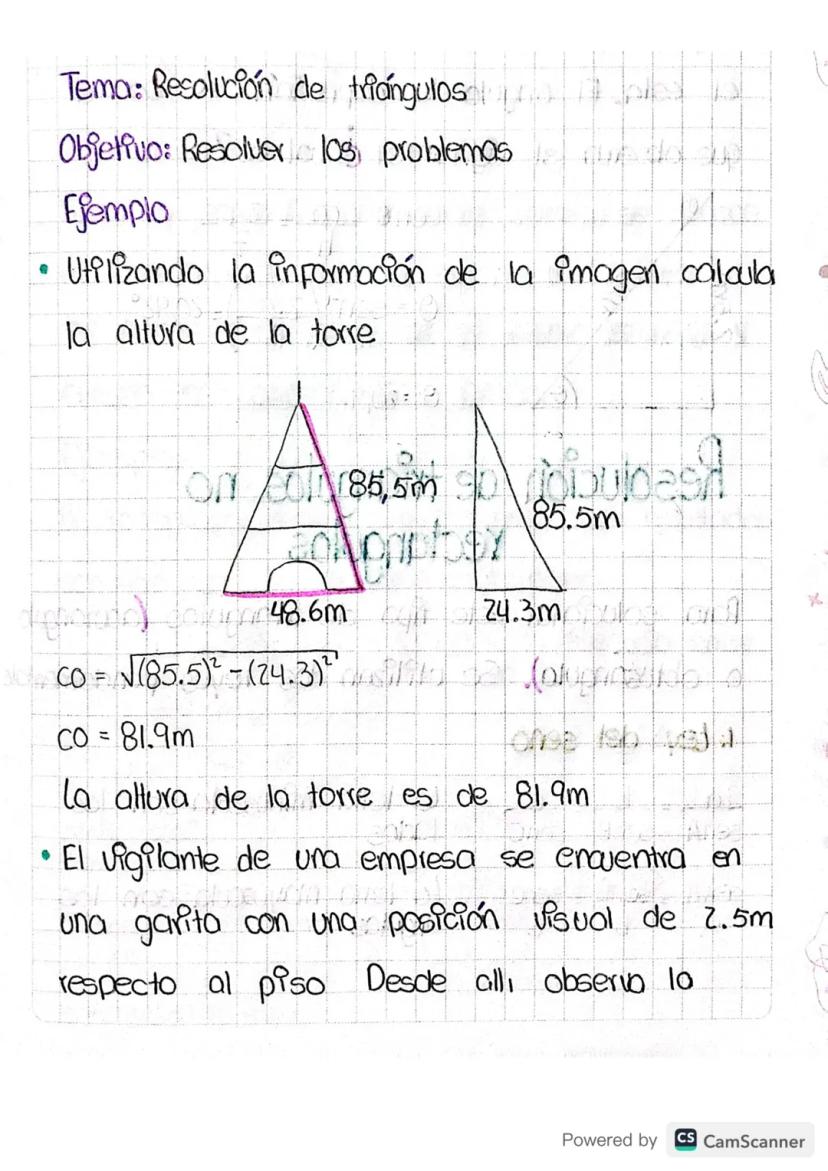 Tema: Resolución de triángulos
Objetivo: Resolver los problemas
Ejemplo
• Utilizando la información de la imagen calcula
la altura de la torre
85,5m
85.5m
48.6m
24.3m
co = √(85.5)² - (24.3)²
co = 81.9m
La altura de la torre es de 81.9m
• El vigilante de una empresa se encuentra en
una garita con una posición visual de 2.5m
respecto al piso Desde allí observa la
Powered by CS CamScanner